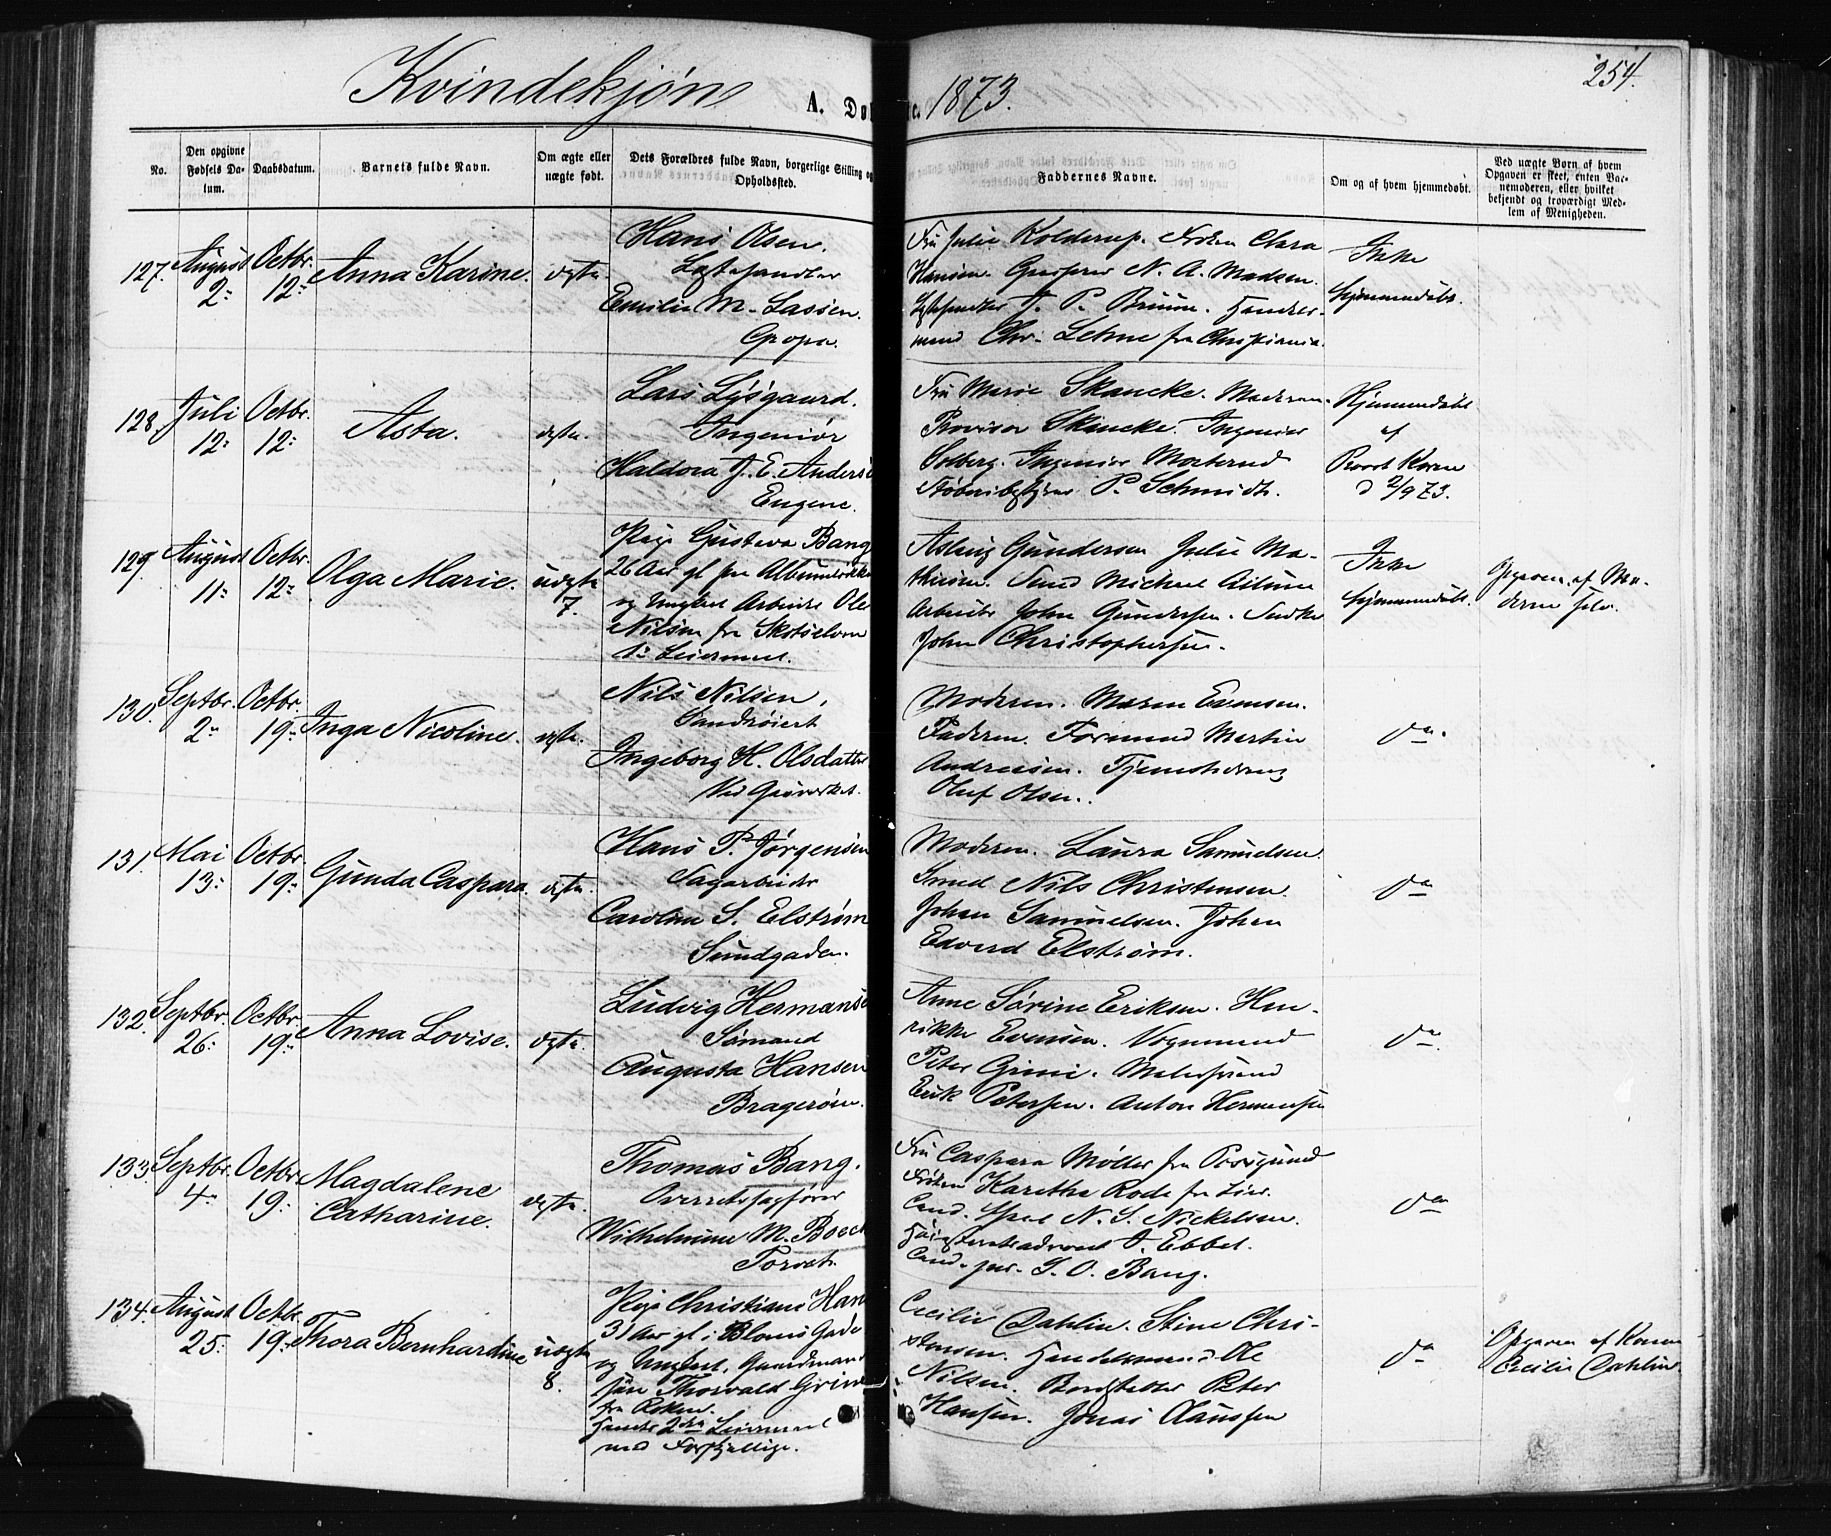 254.
Kvindekjøn
A. Dø
e. 1873.
No.
Den opgivne Fødsels Da-
tum.
Daabsdatum.
Barnets fulde Navn.
Om ægte eller
uægte født.
Dets Forældres fulde Navn, borgerlige Stilling og
Opholdssted.
Faddernes Navne.
Om og af hvem hjemmedøbt.
Ved uægte Børn af hvem
Opgaven er skeet, enten Bar-
nemoderen, eller hvilket
bekjendt og troværdigt Med-
lem af Menigheden.
127.
August
2:
Octbr.
12:
Anna Karine.
ægte.
Hans Olsen.
Emilie M. Lassen.
Fru Julie Kolderup. Frøken Clara
Hansen. N. A. Madsen.
P. Bruun.
Chr. Lehne fra Christiania.
Ikke
hjemmedøbt.
128.
Juli
12:
Octbr.
12:
Asta.
ægte.
Lars Lysgaard.
Ingeniør
Haldora J. E. Anderse
Eugene.
Fru Marie Skancke. Moderen.
Provisor Skancke. Ingeniør
Solberg. Ingeniør
P. Schmidt.
Hjemmedøbt
af
Provst
d 2/9 73.
129.
August
11:
Octbr.
12:
Olga Marie.
uægte
7.
Pige Gustava Bang
26 Aar gl fra
og Ungkarl Arbeider Ole
Nilsen fra Skotselven
1ste Leiermaal.
Aslaug Gundersen Julie Ma-
thiesen. Smed Michael
Arbeider John Gundersen.
John Christophersen.
Ikke
hjemmedøbt.
Opgaven af Mo-
deren selv.
130.
Septbr.
2:
Octbr.
19:
Inga Nicoline.
ægte.
Nils Nilsen,
Ingeborg H. Olsdatter
Ved Gasverket.
Moderen. Maren Evensen.
Faderen. Formand Martin
Andreasen. Tjenestedreng
Oluf Olsen.
do.
131.
Mai
13:
Octbr.
19:
Gunda Caspara.
ægte.
Hans P. Jørgensen
Sagarbeider
Caroline S. Elstrøm
Sundgaden.
Moderen. Laura Samuelsen.
Smed Nils Christensen.
Johan Samuelsen. Johan
Edvard Elstrøm.
do
132.
Septbr.
26:
Octbr.
19:
Anna Lovise.
ægte.
Ludvig Hermanse
Sømand
Augusta Hansen
Bragerøen.
Anne Sørine Eriksen. Hen-
rikke Evensen. Vognmand
Peter
Erik Petersen. Anton Hermansen
do.
133.
Septbr.
4:
Octbr.
19:
Magdalene
Catharine.
ægte.
Thomas Bang.
Overretssagfører
Wilhelmine M. Boeck
Torvet.
Fru Caspara Møller fra Porsgrund
Frøken Karetha Rode fra Lier.
Cand. N. S. Nickelsen.
Ebbel.
Cand. jur. S. O. Bang.
do
134.
August
25:
Octbr.
19:
Thora Bernhardine
uægte
8.
Pige Christiane Han
31 Aar gl i Gade
og Ungkarl, Gaardmand
søn Thorvald
fra Røken.
2det Leiermaal
med Forskjellige.
Cecilie Dahlin. Stine Chri-
stensen. Handelsmand Ole
Nilsen. Peter
Hansen. Jonas Claussen
do
Opgaven af Konen
Cecilie Dahlin.